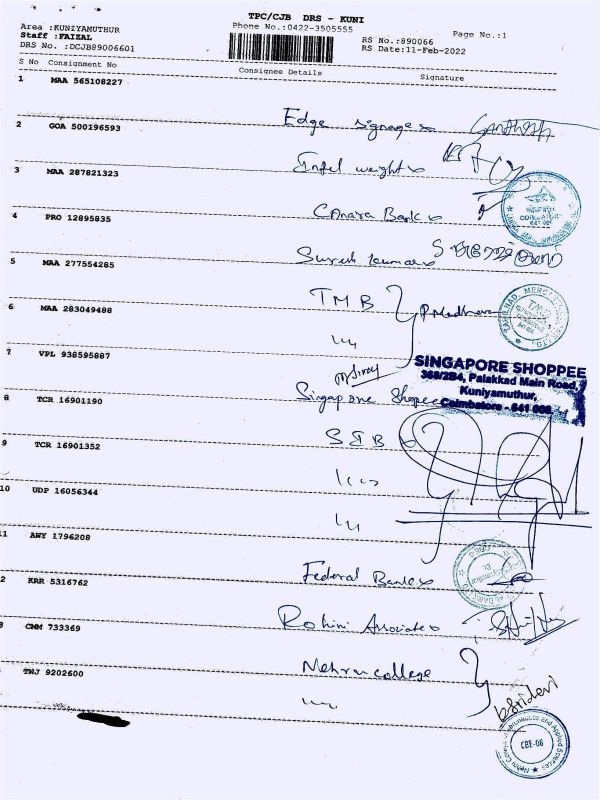 TPC/CJB DRS - KUNI
Area :KUNIYAMUTHUR
Phone No.:0422-3505555
Page No.:1
Staff :FAIZAL
RS No.:890066
DRS No. :DCJB89006601
RS Date:11-Feb-2022
S No Consignment No Consignee Details Signature
1 MAA 565108227
Edge signages
2 GOA 500196593
weight
3 MAA 287821323
Canara Bank
4 PRO 12895835
Suresh kumar
5 MAA 277554285
TMB
6 MAA 283049488
7 VPL 938595887
SINGAPORE SHOPPEE
368/2B4, Palakkad Main Road,
Kuniyamuthur,
Coimbatore - 641 008
Singapore Shopee
8 TCR 16901190
SIB
9 TCR 16901352
10 UDP 16056344
11 AWY 1796208
Federal Bank
2 KRR 5316762
Rohini Associates
3 CNM 733369
Nehru college
TNJ 9202600
Sridevi
CBE-08